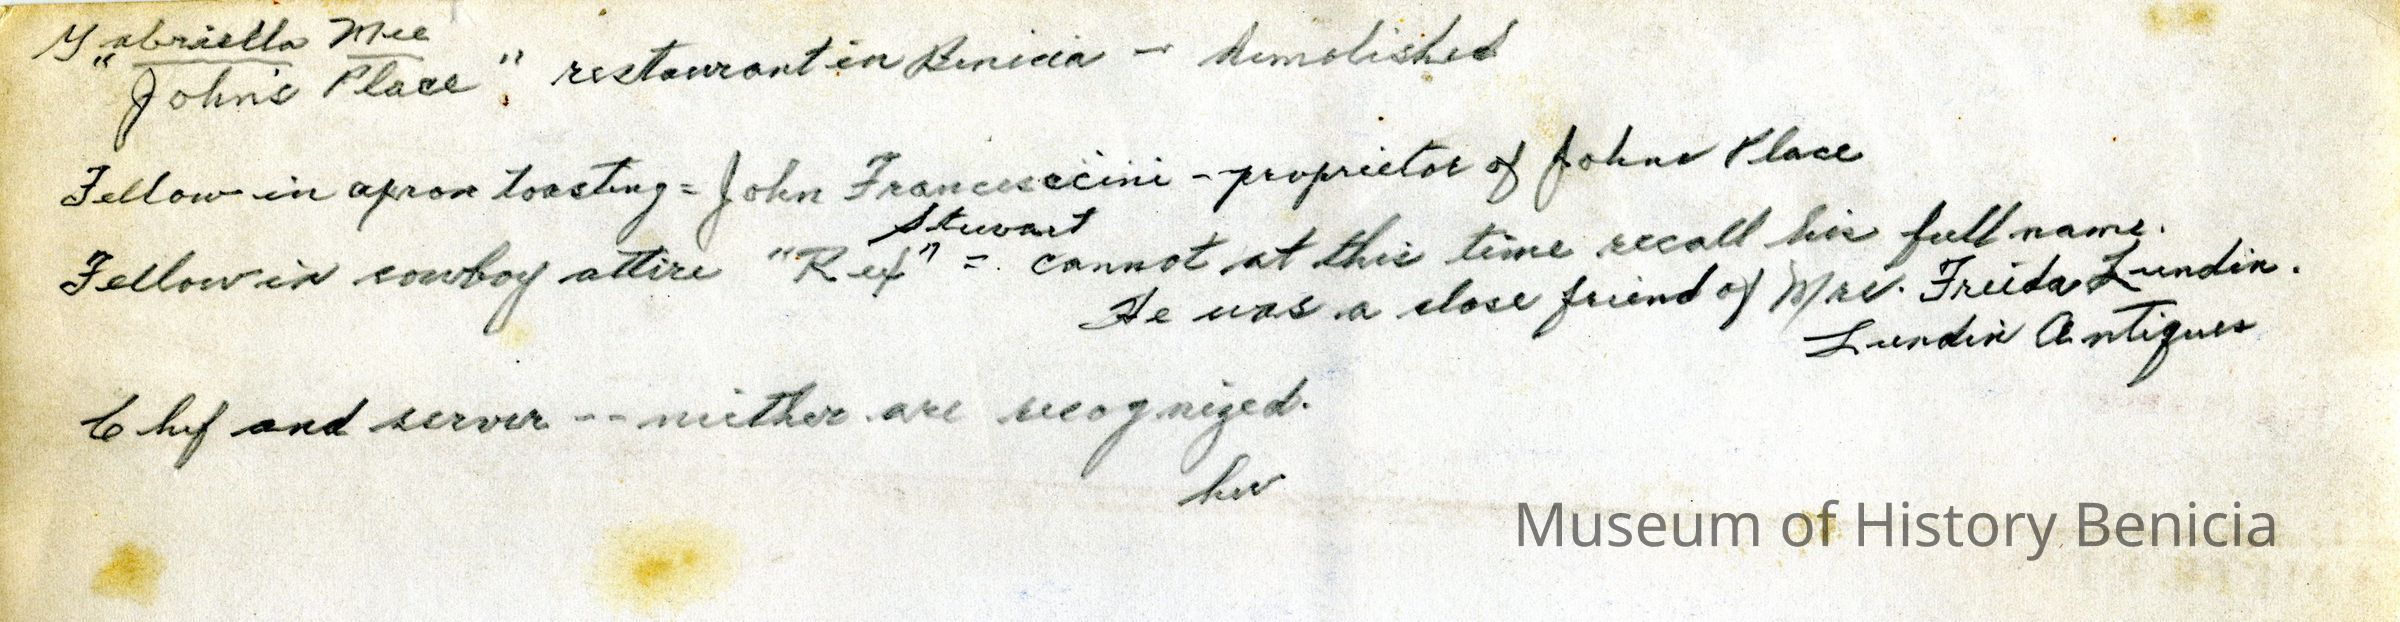 Gabriella Mee
"John's Place" restaurant in Benicia - demolished
Fellow in apron toasting = John Francescini - proprietor of Johns Place
Stewart
Fellow in cowboy attire "Rex" = cannot at this time recall his full name.
He was a close friend of Mrs. Freida Lundin.
Lundin Antiques
Chef and server -- neither are recognized.
Museum of History Benicia